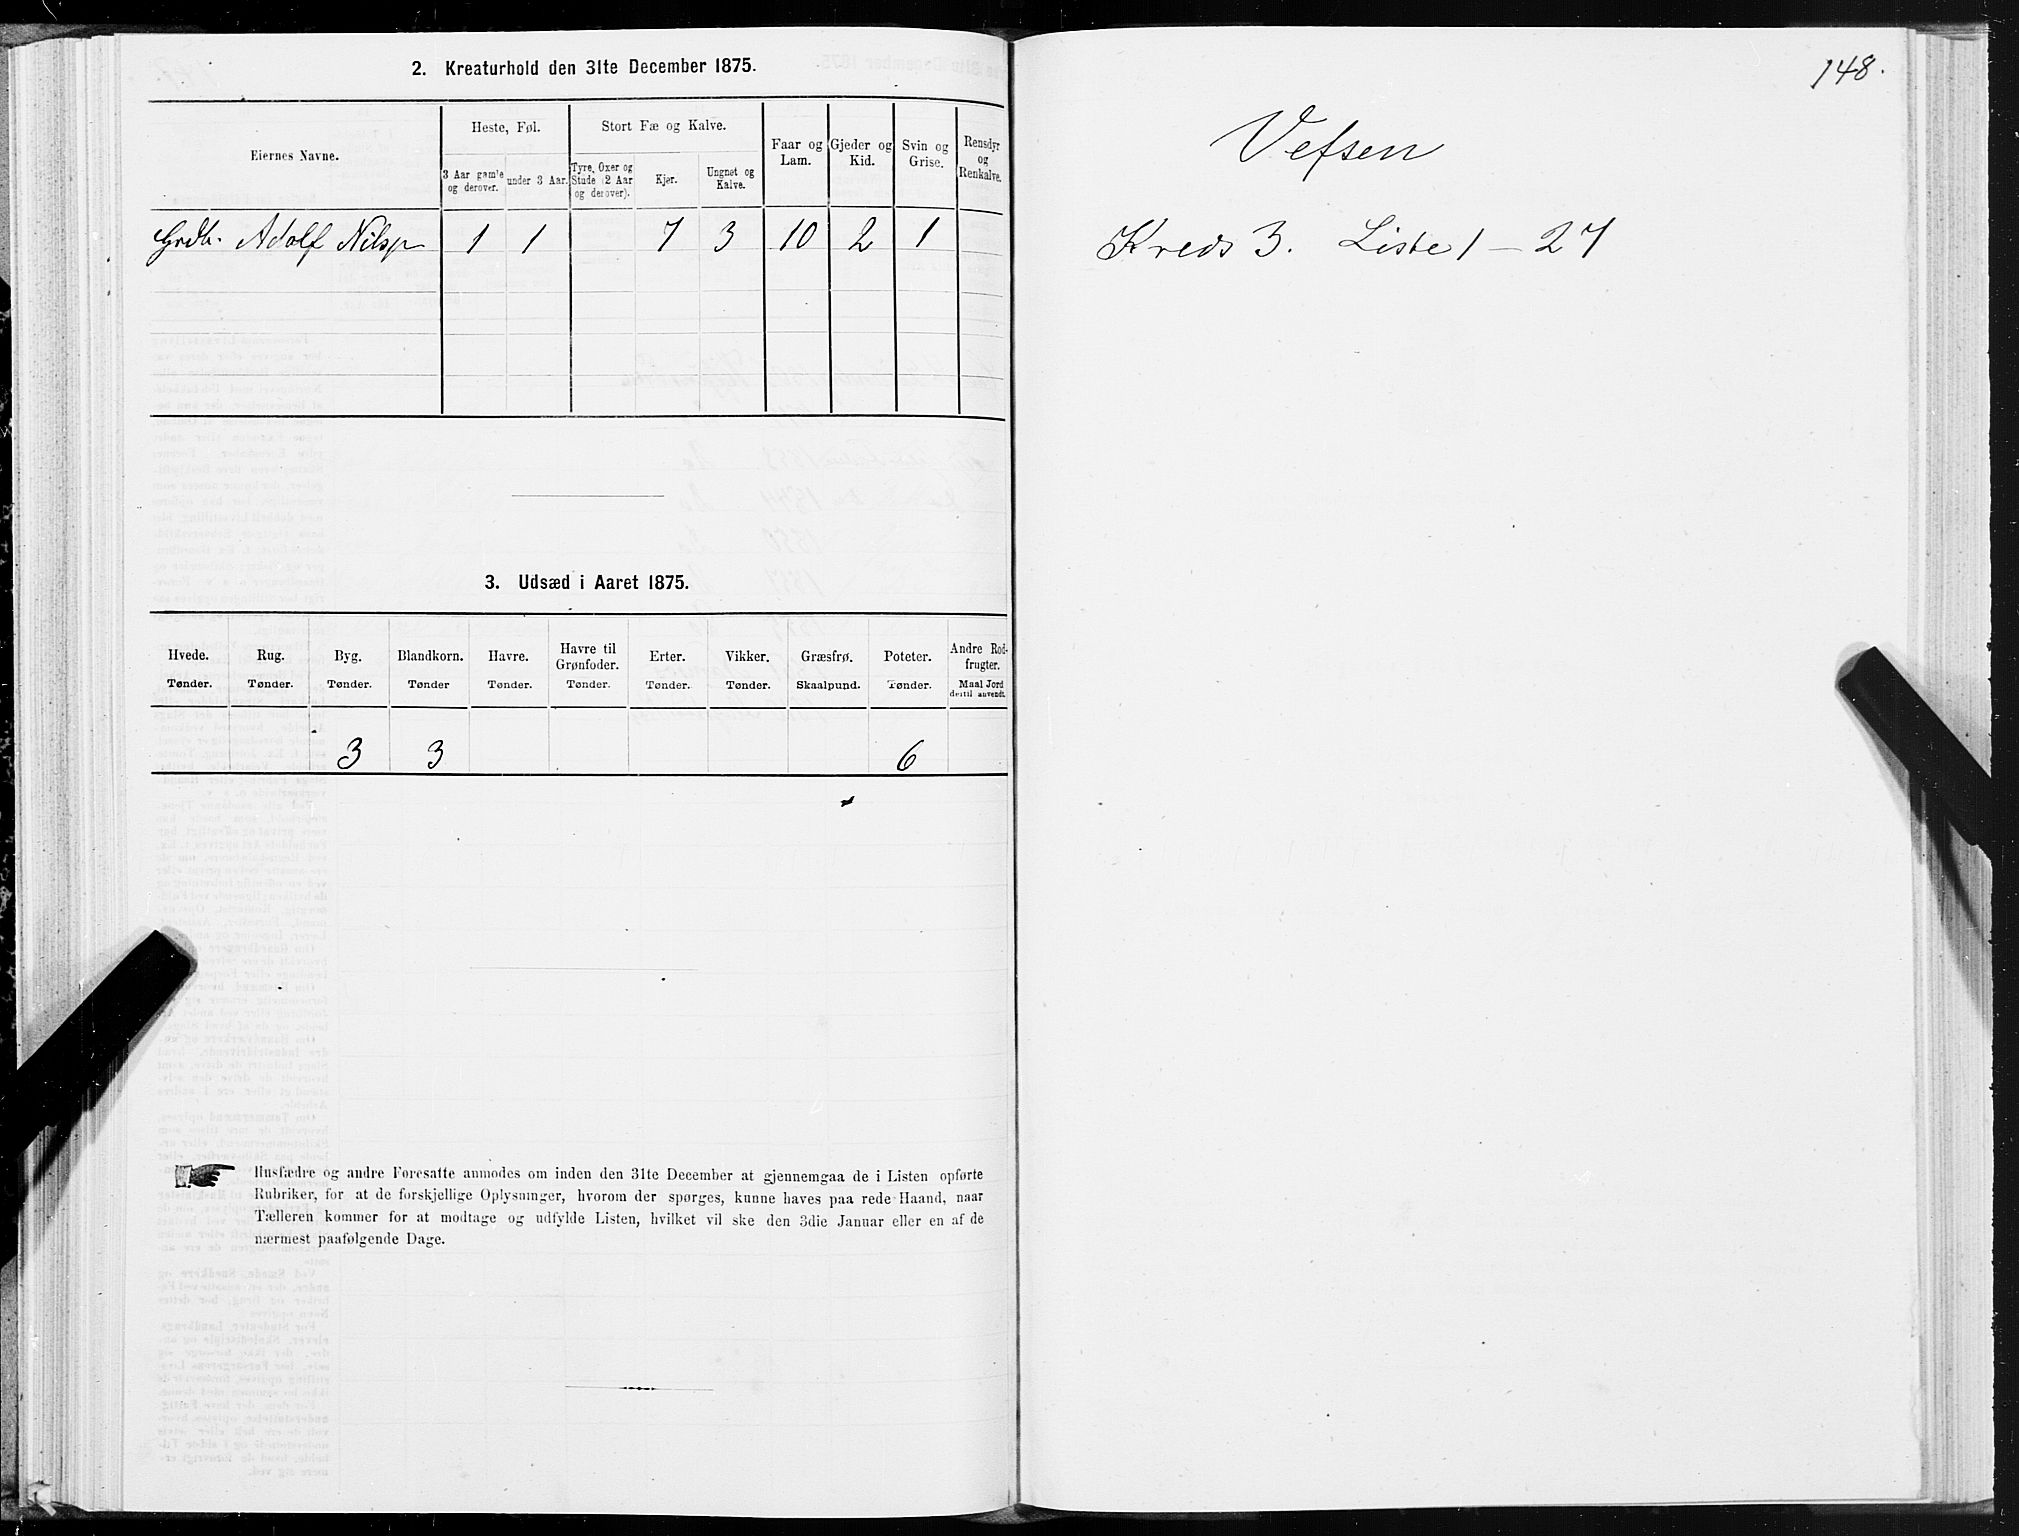 2. Kreaturhold den 31te December 1875.
Eiernes Navne.
Heste, Føl.
Stort Fæ og Kalve.
Faar og Lam.
Gjeder og Kid.
Svin og Grise.
Rensdyr og Renkalve.
3 Aar gamle og derover.
under 3 Aar.
Tyre, Oxer og Stude (2 Aar og derover).
Kjør.
Ungnet og Kalve.
Grdb. Adolf Nilsen 1 1 7 3 10 2 1
3. Udsæd i Aaret 1875.
Hvede. Rug. Byg. Blandkorn. Havre. Havre til Grønfoder. Erter. Vikker. Græsfrø. Poteter. Andre Rodfrugter.
Tønder. Tønder. Tønder. Tønder Tønder. Tønder. Tønder. Tønder. Skaalpund. Tønder. Maal Jord dertil anvendt.
3 3 6
Husfædre og andre Foresatte anmodes om inden den 31te December at gjennemgaa de i Listen opførte
Rubriker, for at de forskjellige Oplysninger, hvorom der spørges, kunne haves paa rede Haand, naar
Tælleren kommer for at modtage og udfylde Listen, hvilket vil ske den 3die Januar eller en af de
nærmest paafølgende Dage.
148.
Vefsen
Kreds 3. Liste 1 - 27